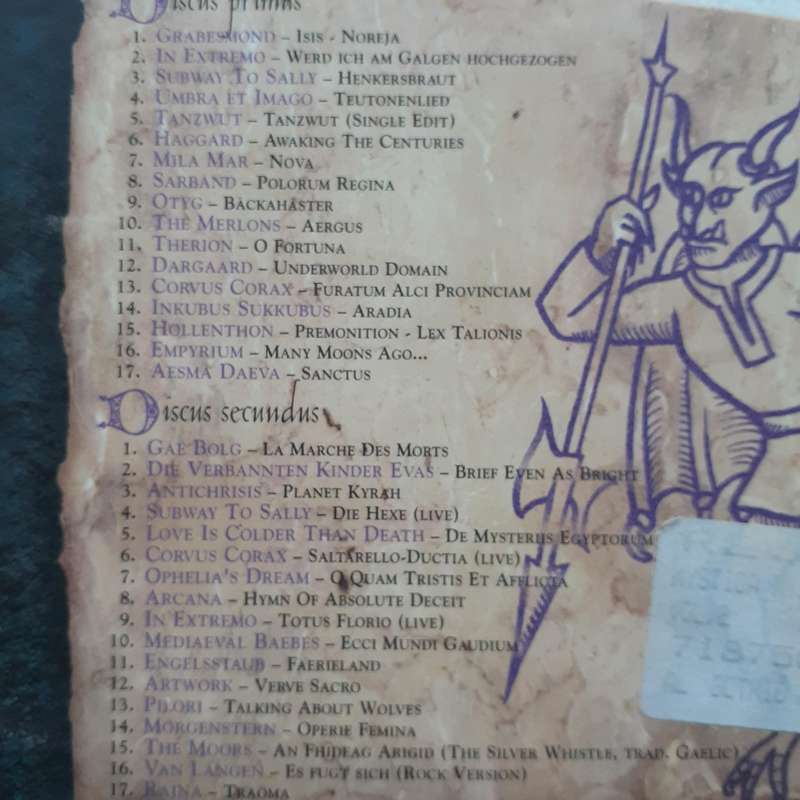 Discus primus
1. Grabesmond – Isis - Noreja
2. In Extremo – Werd ich am Galgen hochgezogen
3. Subway To Sally – Henkersbraut
4. Umbra et Imago – Teutonenlied
5. Tanzwut – Tanzwut (Single Edit)
6. Haggard – Awaking The Centuries
7. Mila Mar – Nova
8. Sarband – Polorum Regina
9. Otyg – Bäckahäster
10. The Merlons – Aergus
11. Therion – O Fortuna
12. Dargaard – Underworld Domain
13. Corvus Corax – Furatum Alci Provinciam
14. Inkubus Sukkubus – Aradia
15. Hollenthon – Premonition - Lex Talionis
16. Empyrium – Many Moons Ago...
17. Aesma Daeva – Sanctus
Discus secundus
1. Gae Bolg – La Marche Des Morts
2. Die Verbannten Kinder Evas – Brief Even As Bright
3. Antichrisis – Planet Kyrah
4. Subway To Sally – Die Hexe (live)
5. Love Is Colder Than Death – De Mysteriis Egyptorum
6. Corvus Corax – Saltarello-Ductia (live)
7. Ophelia's Dream – O Quam Tristis Et Afflicta
8. Arcana – Hymn Of Absolute Deceit
9. In Extremo – Totus Florio (live)
10. Mediaeval Baebes – Ecci Mundi Gaudium
11. Engelsstaub – Faerieland
12. Artwork – Verve Sacro
13. Pilori – Talking About Wolves
14. Morgenstern – Operie Femina
15. The Moors – An Fhideag Arigid (The Silver Whistle, trad. Gaelic)
16. Van Langen – Es fugt sich (Rock Version)
17. Rajna – Traoma